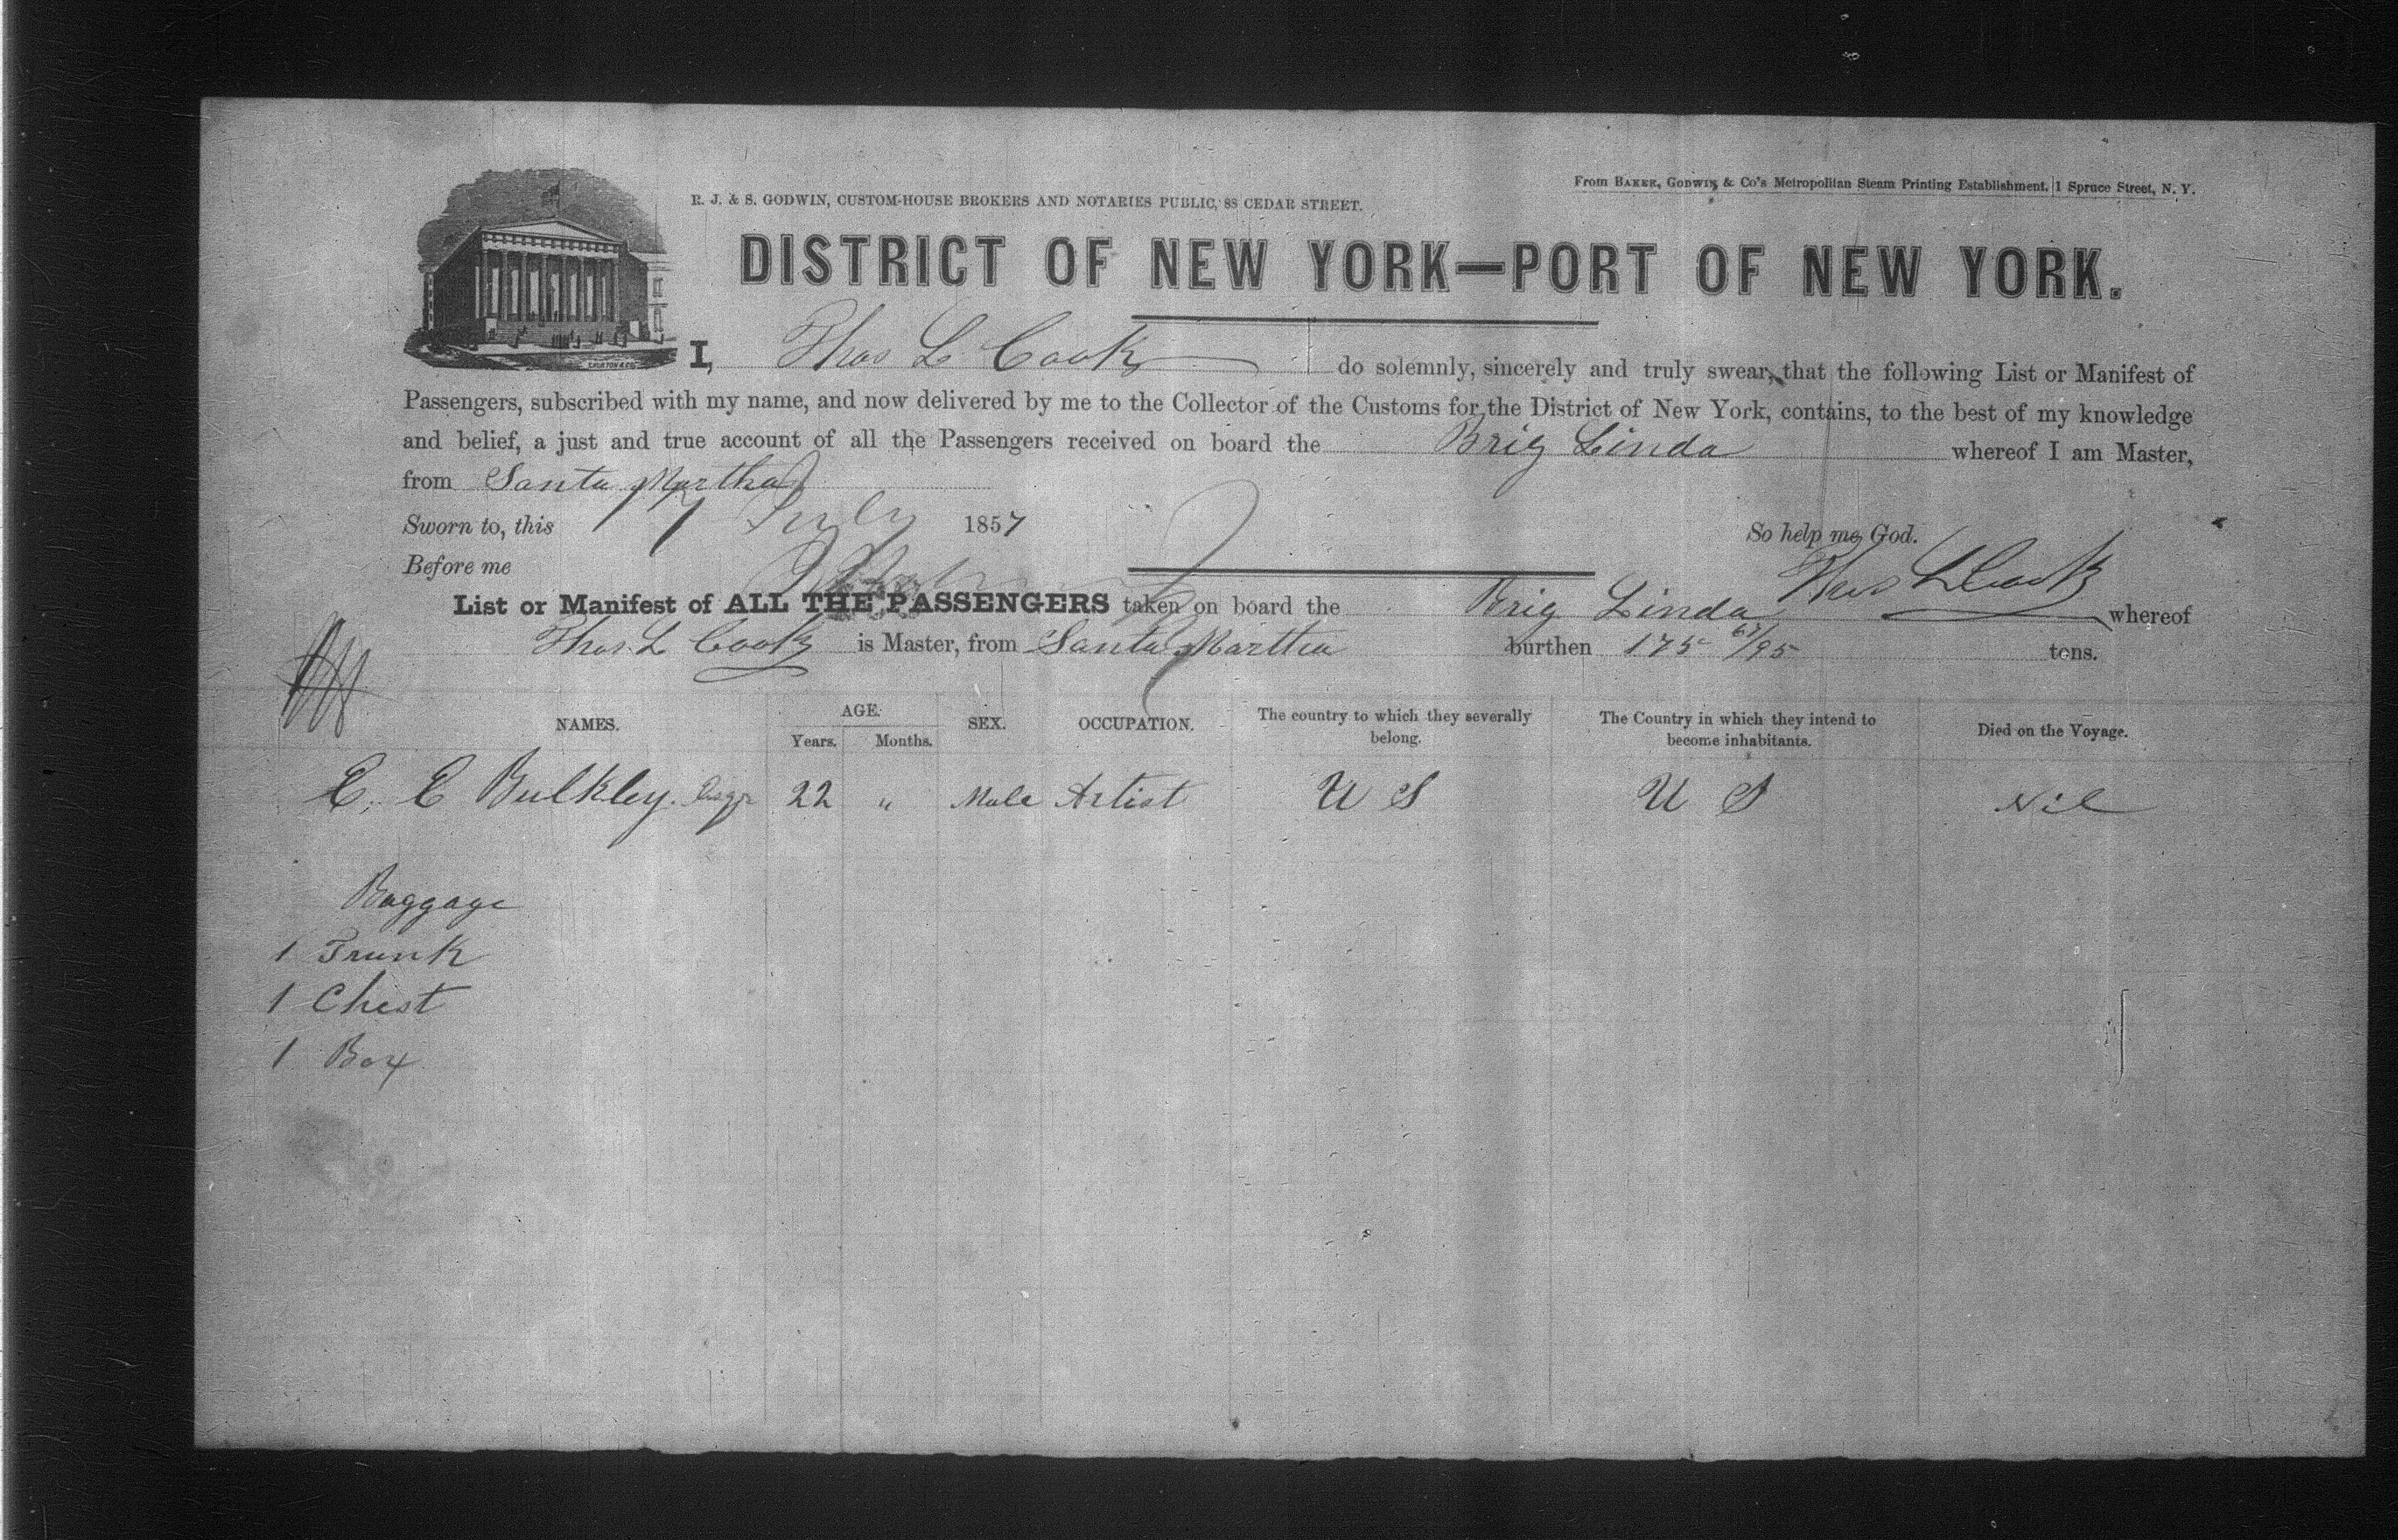 From BAKER, GODWIN & Co's Metropolitan Steam Printing Establishment, 1 Spruce Street, N. Y.
R. J. & S. GODWIN, CUSTOM-HOUSE BROKERS AND NOTARIES PUBLIC, 88 CEDAR STREET.
DISTRICT OF NEW YORK—PORT OF NEW YORK.
I, Thos L Cook do solemnly, sincerely and truly swear, that the following List or Manifest of
Passengers, subscribed with my name, and now delivered by me to the Collector of the Customs for the District of New York, contains, to the best of my knowledge
and belief, a just and true account of all the Passengers received on board the Brig Linda whereof I am Master,
from Santa Martha
Sworn to, this 7 July 1857 So help me God.
Before me Thos L Cook
List or Manifest of ALL THE PASSENGERS taken on board the Brig Linda whereof
Thos. L Cook is Master, from Santa Martha burthen 175 67/95 tons.
NAMES. AGE. Years. Months. SEX. OCCUPATION. The country to which they severally belong. The Country in which they intend to become inhabitants. Died on the Voyage.
E. E Bulkley. Esqr 22 " Male Artist U S U S Nil
Baggage
1 Trunk
1 Chest
1 Box